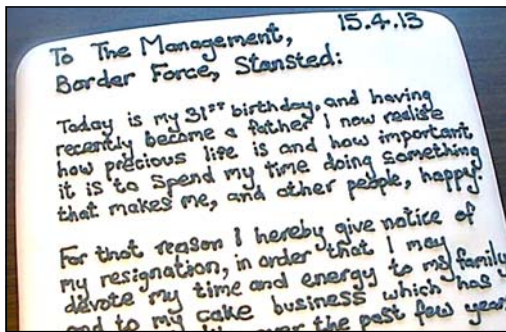 15.4.13
To The Management,
Border Force, Stansted:
Today is my 31ST birthday, and having
recently become a father I now realise
how precious life is and how important
it is to spend my time doing something
that makes me, and other people, happy.
For that reason I hereby give notice of
my resignation, in order that I may
devote my time and energy to my family
and to my cake business which has
over the past few years